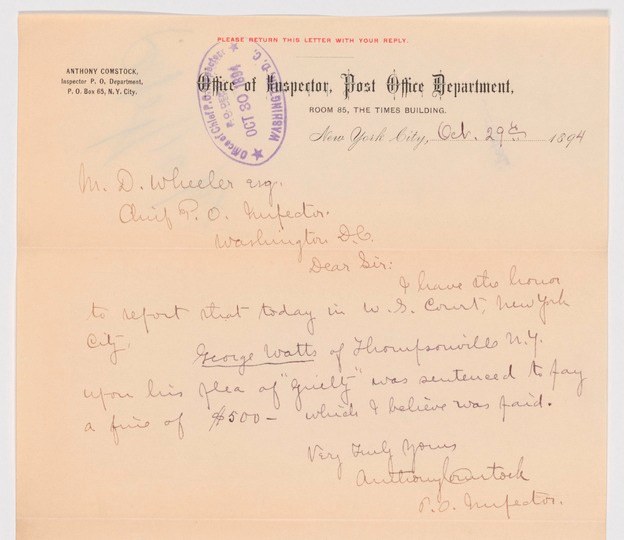 PLEASE RETURN THIS LETTER WITH YOUR REPLY.
ANTHONY COMSTOCK,
Inspector P. O. Department,
P. O. Box 65, N. Y. City.
Office of Chief P.O. Inspector
OCT 30 1894
WASHINGTON, D. C.
Office of Inspector, Post Office Department,
ROOM 85, THE TIMES BUILDING.
New York City, Oct. 29th 1894
M. D. Wheeler esq.
Chief P. O. Inspector.
Washington D.C.
Dear Sir:
I have the honor
to report that today in U. S. Court, New York
City.
George Watts of Thompsonville N.Y.
upon his plea of "Guilty" was sentenced to pay
a fine of $500— which I believe was paid.
Very Truly Yours
Anthony Comstock
P. O. Inspector.